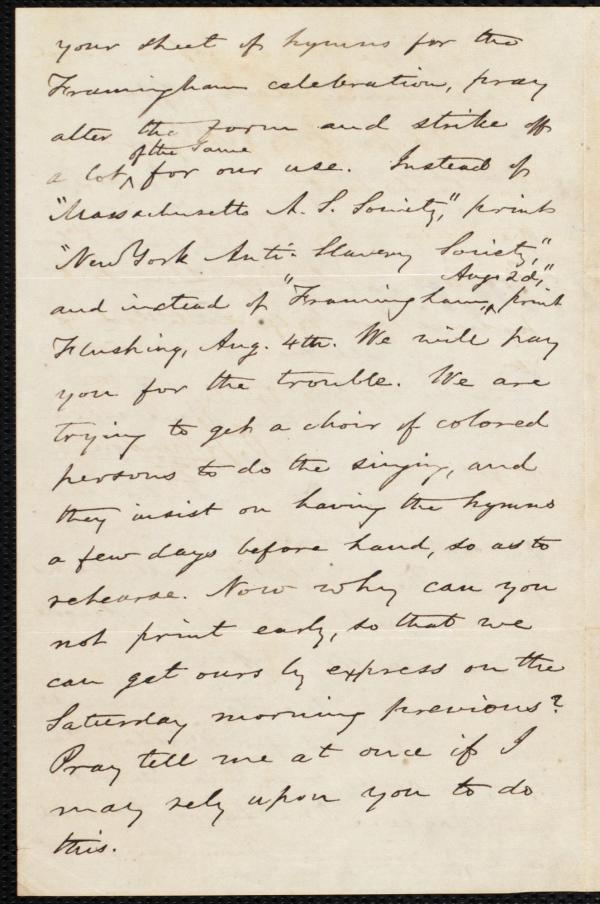 your sheet of hymns for the
Framingham celebration, pray
alter the form and strike off
of the same
a lot ^ for our use. Instead of
"Massachusetts A. S. Society," print
"New York Anti-Slavery Society,"
Aug. 2d,"
and instead of "Framingham, ^ print
Flushing, Aug. 4th. We will pay
you for the trouble. We are
trying to get a choir of colored
persons to do the singing, and
they insist on having the hymns
a few days before hand, so as to
rehearse. Now why can you
not print early, so that we
can get ours by express on the
Saturday morning previous?
Pray tell me at once if I
may rely upon you to do
this.